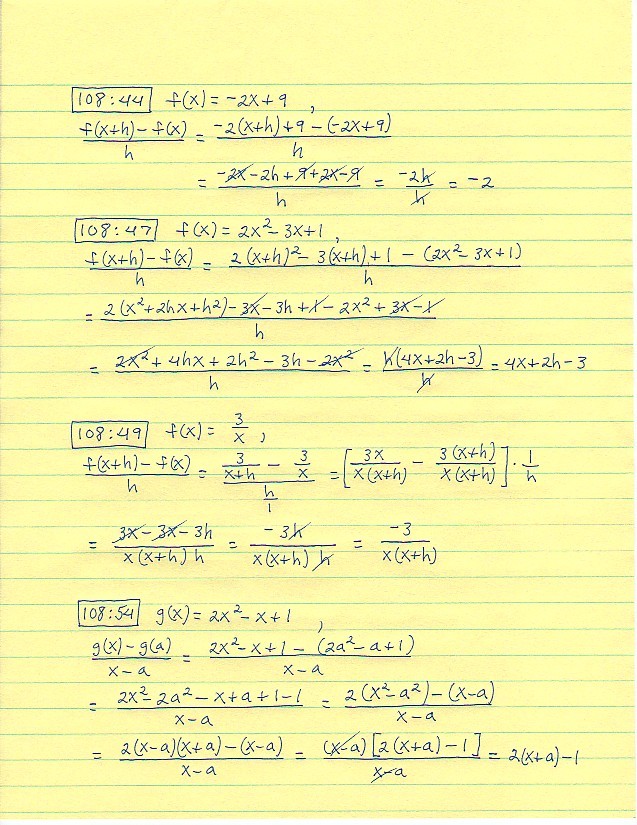 108:44 f(x) = -2x+9 ,
(f(x+h) - f(x))/h = (-2(x+h)+9 - (-2x+9))/h
= (-2x-2h+9+2x-9)/h = -2h/h = -2
108:47 f(x) = 2x² - 3x+1 ,
(f(x+h) - f(x))/h = (2(x+h)² - 3(x+h)+1 - (2x² - 3x+1))/h
= (2(x²+2hx+h²) - 3x - 3h + 1 - 2x² + 3x - 1)/h
= (2x² + 4hx + 2h² - 3h - 2x²)/h = h(4x+2h-3)/h = 4x+2h-3
108:49 f(x) = 3/x ,
(f(x+h) - f(x))/h = (3/(x+h) - 3/x)/(h/1) = [3x/(x(x+h)) - 3(x+h)/(x(x+h))] · 1/h
= (3x - 3x - 3h)/(x(x+h)h) = -3h/(x(x+h)h) = -3/(x(x+h))
108:54 g(x) = 2x² - x+1 ,
(g(x) - g(a))/(x-a) = (2x² - x+1 - (2a² - a+1))/(x-a)
= (2x² - 2a² - x+a+1-1)/(x-a) = (2(x² - a²) - (x-a))/(x-a)
= (2(x-a)(x+a) - (x-a))/(x-a) = (x-a)[2(x+a) - 1]/(x-a) = 2(x+a) - 1